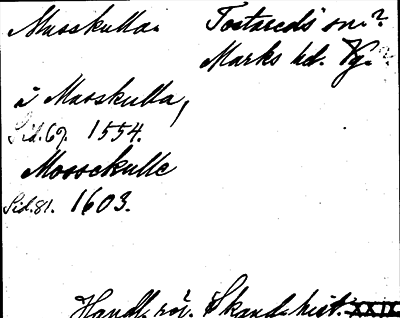 Masskulla. Tostareds sn.?
Marks hd. Vg.?
i Masskulla,
Sid. 67. 1554.
Mossekulle
Sid. 81. 1603.
Handl. rör. Skand. hist. XXIX